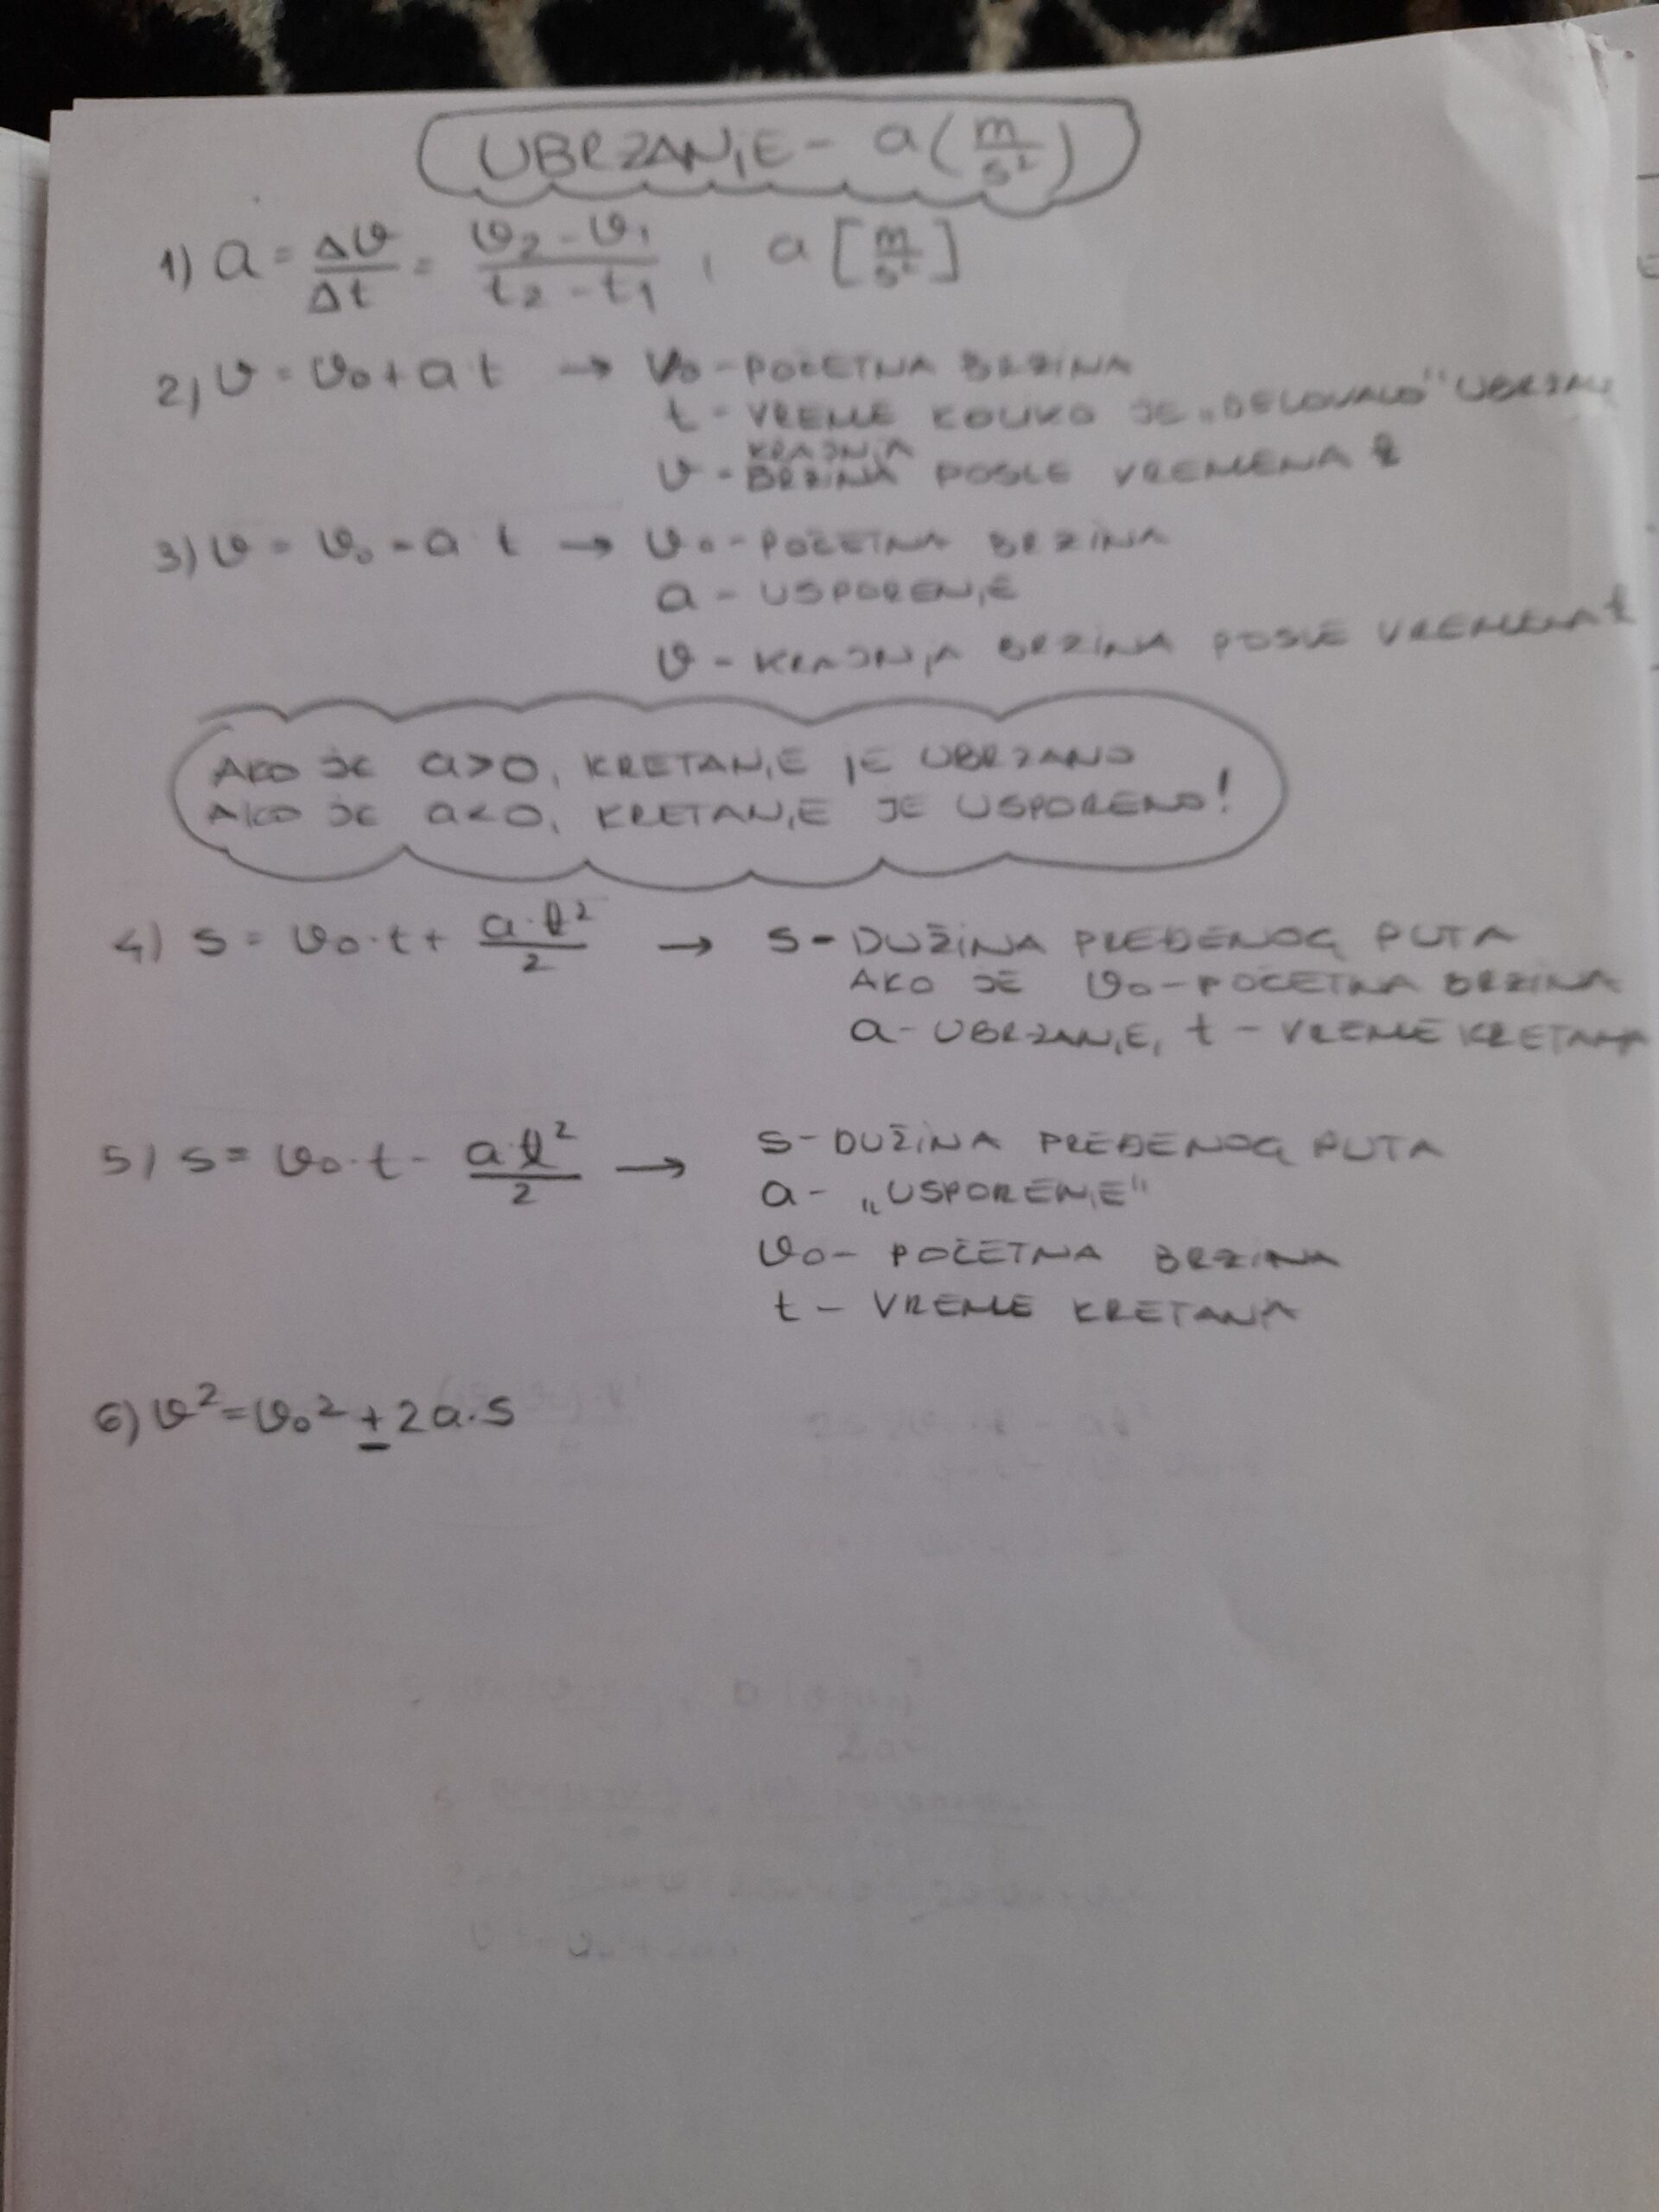 UBRZANJE - a (m/s²)
1) a = Δv/Δt = (v₂ - v₁)/(t₂ - t₁) , a [m/s²]
2) v = v₀ + a·t → v₀ - POČETNA BRZINA
t - VREME KOLIKO JE „DELOVALO“
KRAJNJA
v - BRZINA POSLE VREMENA t
3) v = v₀ - a·t → v₀ - POČETNA BRZINA
a - USPORENJE
v - KRAJNJA BRZINA POSLE VREMENA t
AKO JE a>0, KRETANJE JE UBRZANO
AKO JE a<0, KRETANJE JE USPORENO!
4) s = v₀·t + a·t²/2 → s - DUŽINA PREĐENOG PUTA
AKO JE v₀ - POČETNA BRZINA
a - UBRZANJE, t - VREME KRETANJA
5) s = v₀·t - a·t²/2 → s - DUŽINA PREĐENOG PUTA
a - „USPORENJE“
v₀ - POČETNA BRZINA
t - VREME KRETANJA
6) v² = v₀² ± 2a·s